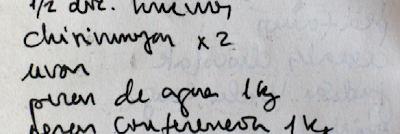 1/2 doc. huevos
chirimoyas x 2
uvas
peras de agua 1 Kg
peras conferencia 1 Kg